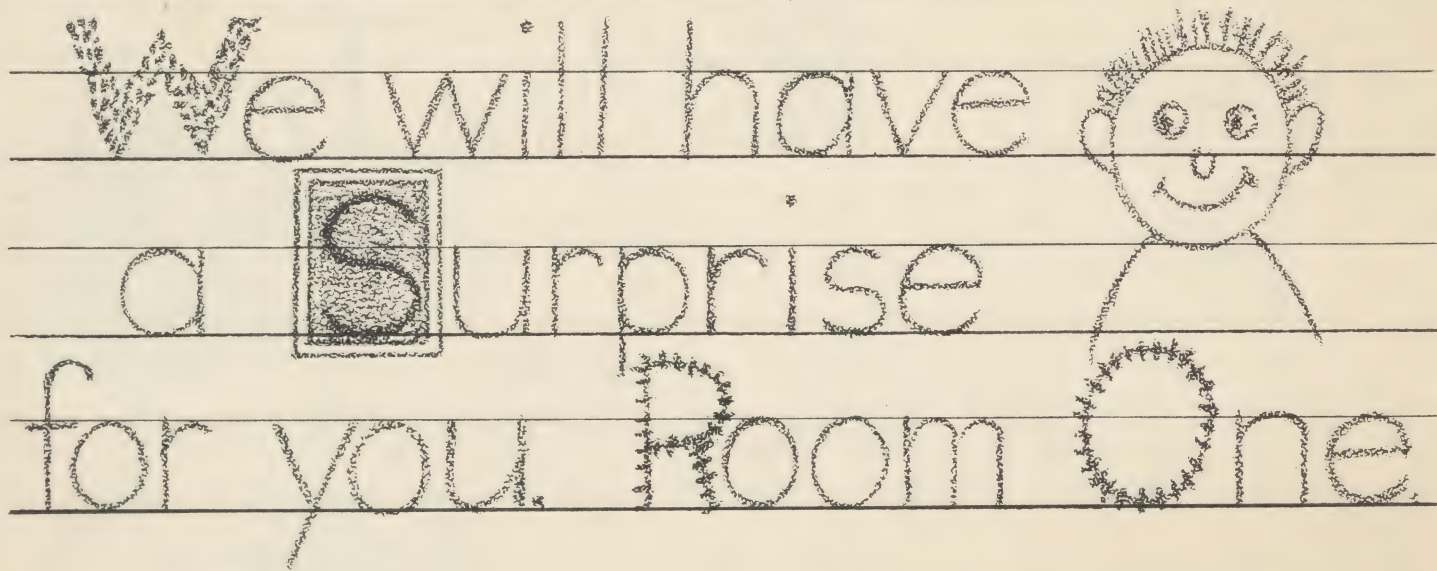 We will have
a Surprise
for you. Room One.